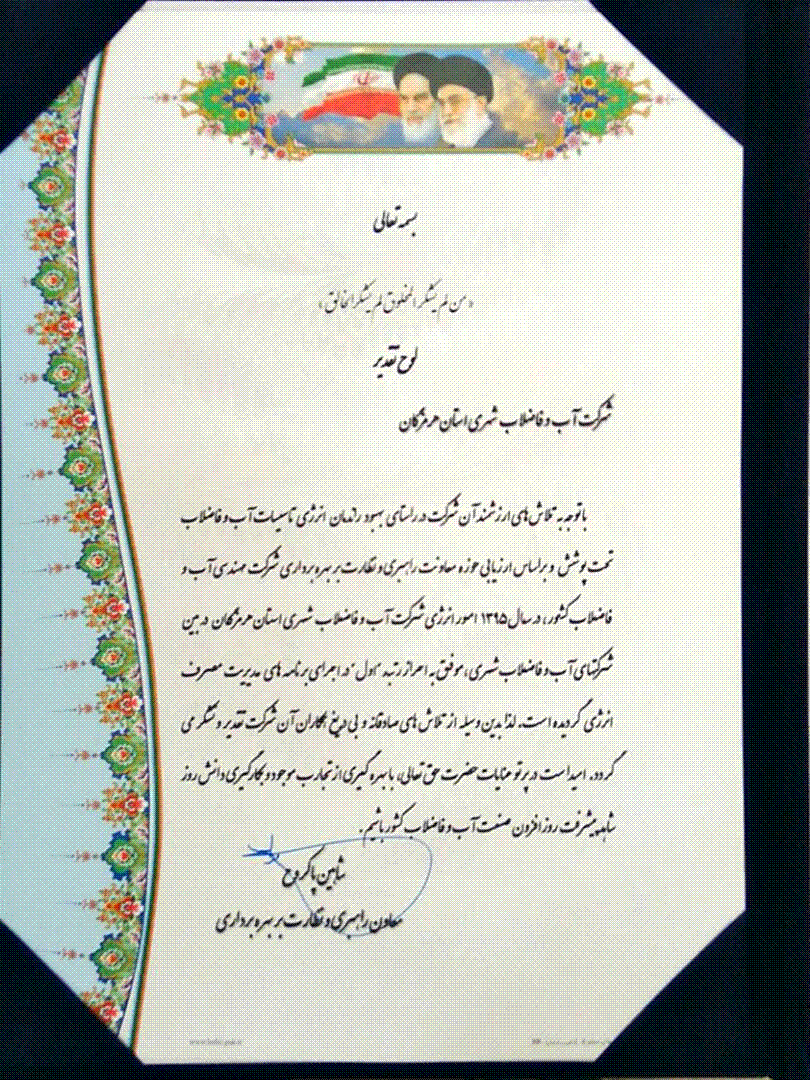 بسمه تعالی
«من لم یشکر المخلوق لم یشکر الخالق»
لوح تقدیر
شرکت آب و فاضلاب شهری استان هرمزگان
با توجه به تلاش های ارزشمند آن شرکت در راستای بهبود راندمان انرژی تاسیسات آب و فاضلاب
تحت پوشش و براساس ارزیابی حوزه معاونت راهبری و نظارت بر بهره برداری شرکت مهندسی آب و
فاضلاب کشور، در سال ۱۳۹۵ امور انرژی شرکت آب و فاضلاب شهری استان هرمزگان در بین
شرکتهای آب و فاضلاب شهری، موفق به احراز رتبه "اول" در اجرای برنامه های مدیریت مصرف
انرژی گردیده است. لذا بدین وسیله از تلاش های صادقانه و بی دریغ همکاران آن شرکت تقدیر و تشکر می
گردد. امید است در پرتو عنایات حضرت حق تعالی، با بهره گیری از تجارب موجود و بکارگیری دانش روز
شاهد پیشرفت روز افزون صنعت آب و فاضلاب کشور باشیم.
شاهین پاکروح
معاون راهبری و نظارت بر بهره برداری